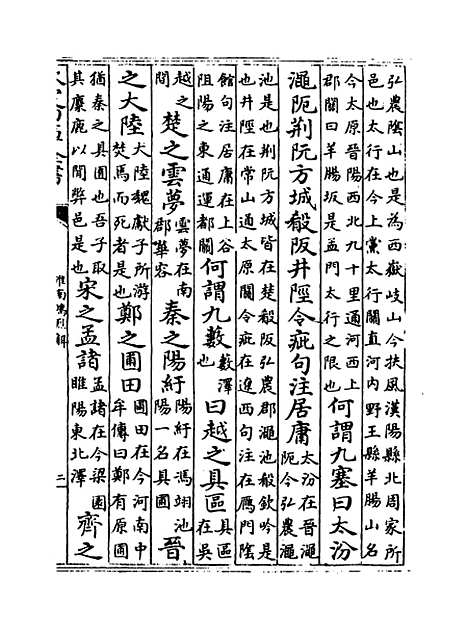 弘農陰山也是為西嶽岐山今扶風漢陽縣北周家所
邑也太行在今上黨太行關直河内野王縣羊腸山名
今太原晉陽西北九十里通河西上
郡關曰羊腸坂是孟門太行之限也
何謂九塞曰太汾
澠阨荆阮方城殽阪井陘令疵句注居庸
太汾在晉澠
阨今弘農澠
池是也荆阮方城皆在楚殽阪弘農郡澠池殽欽吟是
也井陘在常山通太原關令疵在遼西句注在鴈門陰
館句注居庸在上谷
阻陽之東通運都關
何謂九藪
藪澤
也
曰越之具區
具區
在吳
越之
間
楚之雲夢
雲夢在南
郡華容
秦之陽紆
陽紆在馮翊池
陽一名具圃
晉
之大陸
大陸魏獻子所游
焚焉而死者是也
鄭之圃田
圃田在今河南中
牟傳曰鄭有原圃
猶秦之具圃也吾子取
其麋鹿以閒弊邑是也
宋之孟諸
孟諸在今梁國
睢陽東北澤
齊之
淮南鴻烈解
二